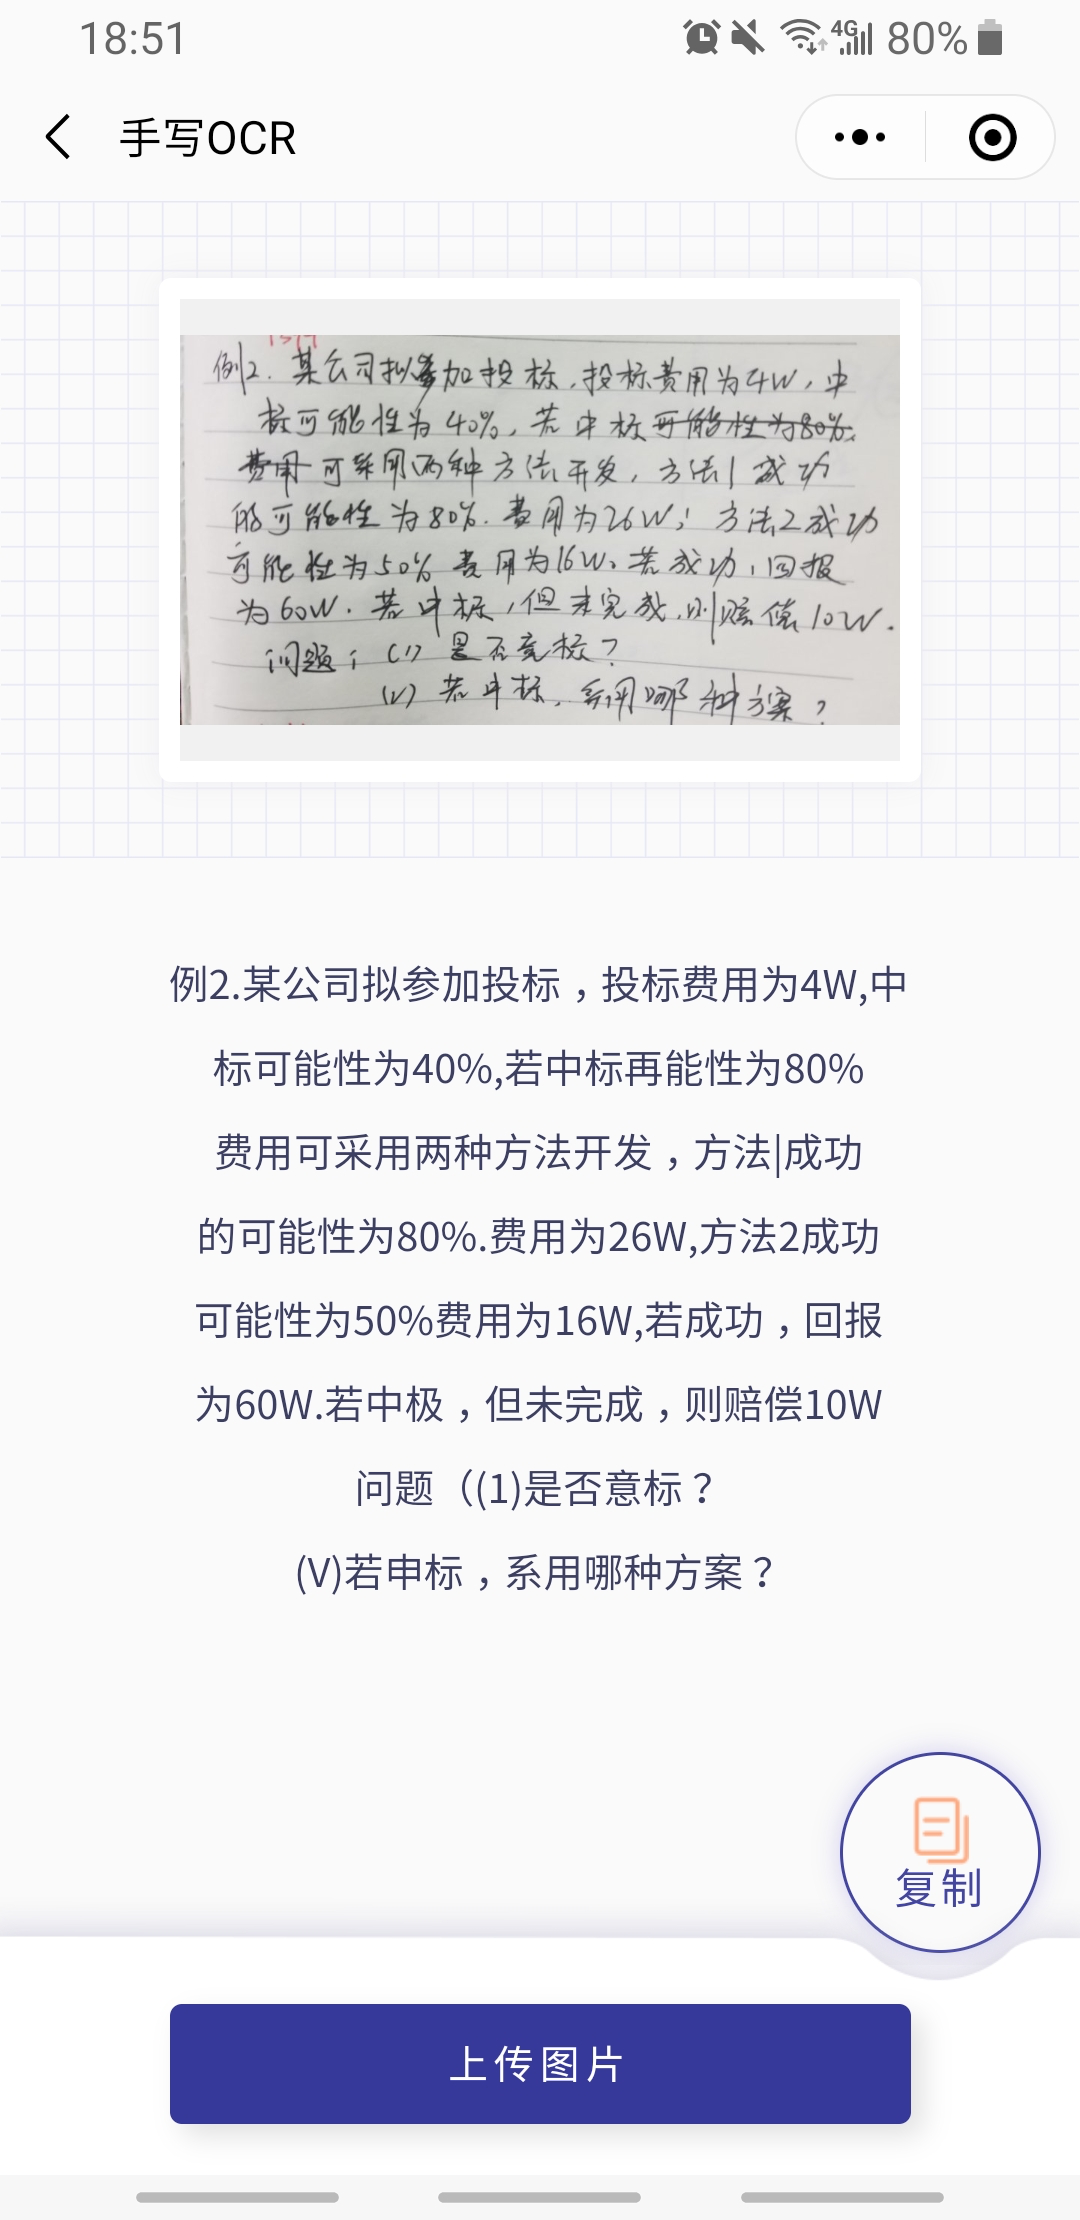 18:51
4G
80%
手写OCR
例2.某公司拟参加投标,投标费用为4W,中
标可能性为40%,若中标可能性为80%,
费用可采用两种方法开发,方法1成功
的可能性为80%.费用为26W;方法2成功
可能性为50%费用为16W。若成功,回报
为60W.若中标,但未完成,则赔偿10W.
问题;(1)是否竞标?
(2)若中标,采用哪种方案?
例2.某公司拟参加投标，投标费用为4W,中
标可能性为40%,若中标再能性为80%
费用可采用两种方法开发，方法|成功
的可能性为80%.费用为26W,方法2成功
可能性为50%费用为16W,若成功，回报
为60W.若中极，但未完成，则赔偿10W
问题（(1)是否意标？
(V)若申标，系用哪种方案？
复制
上传图片